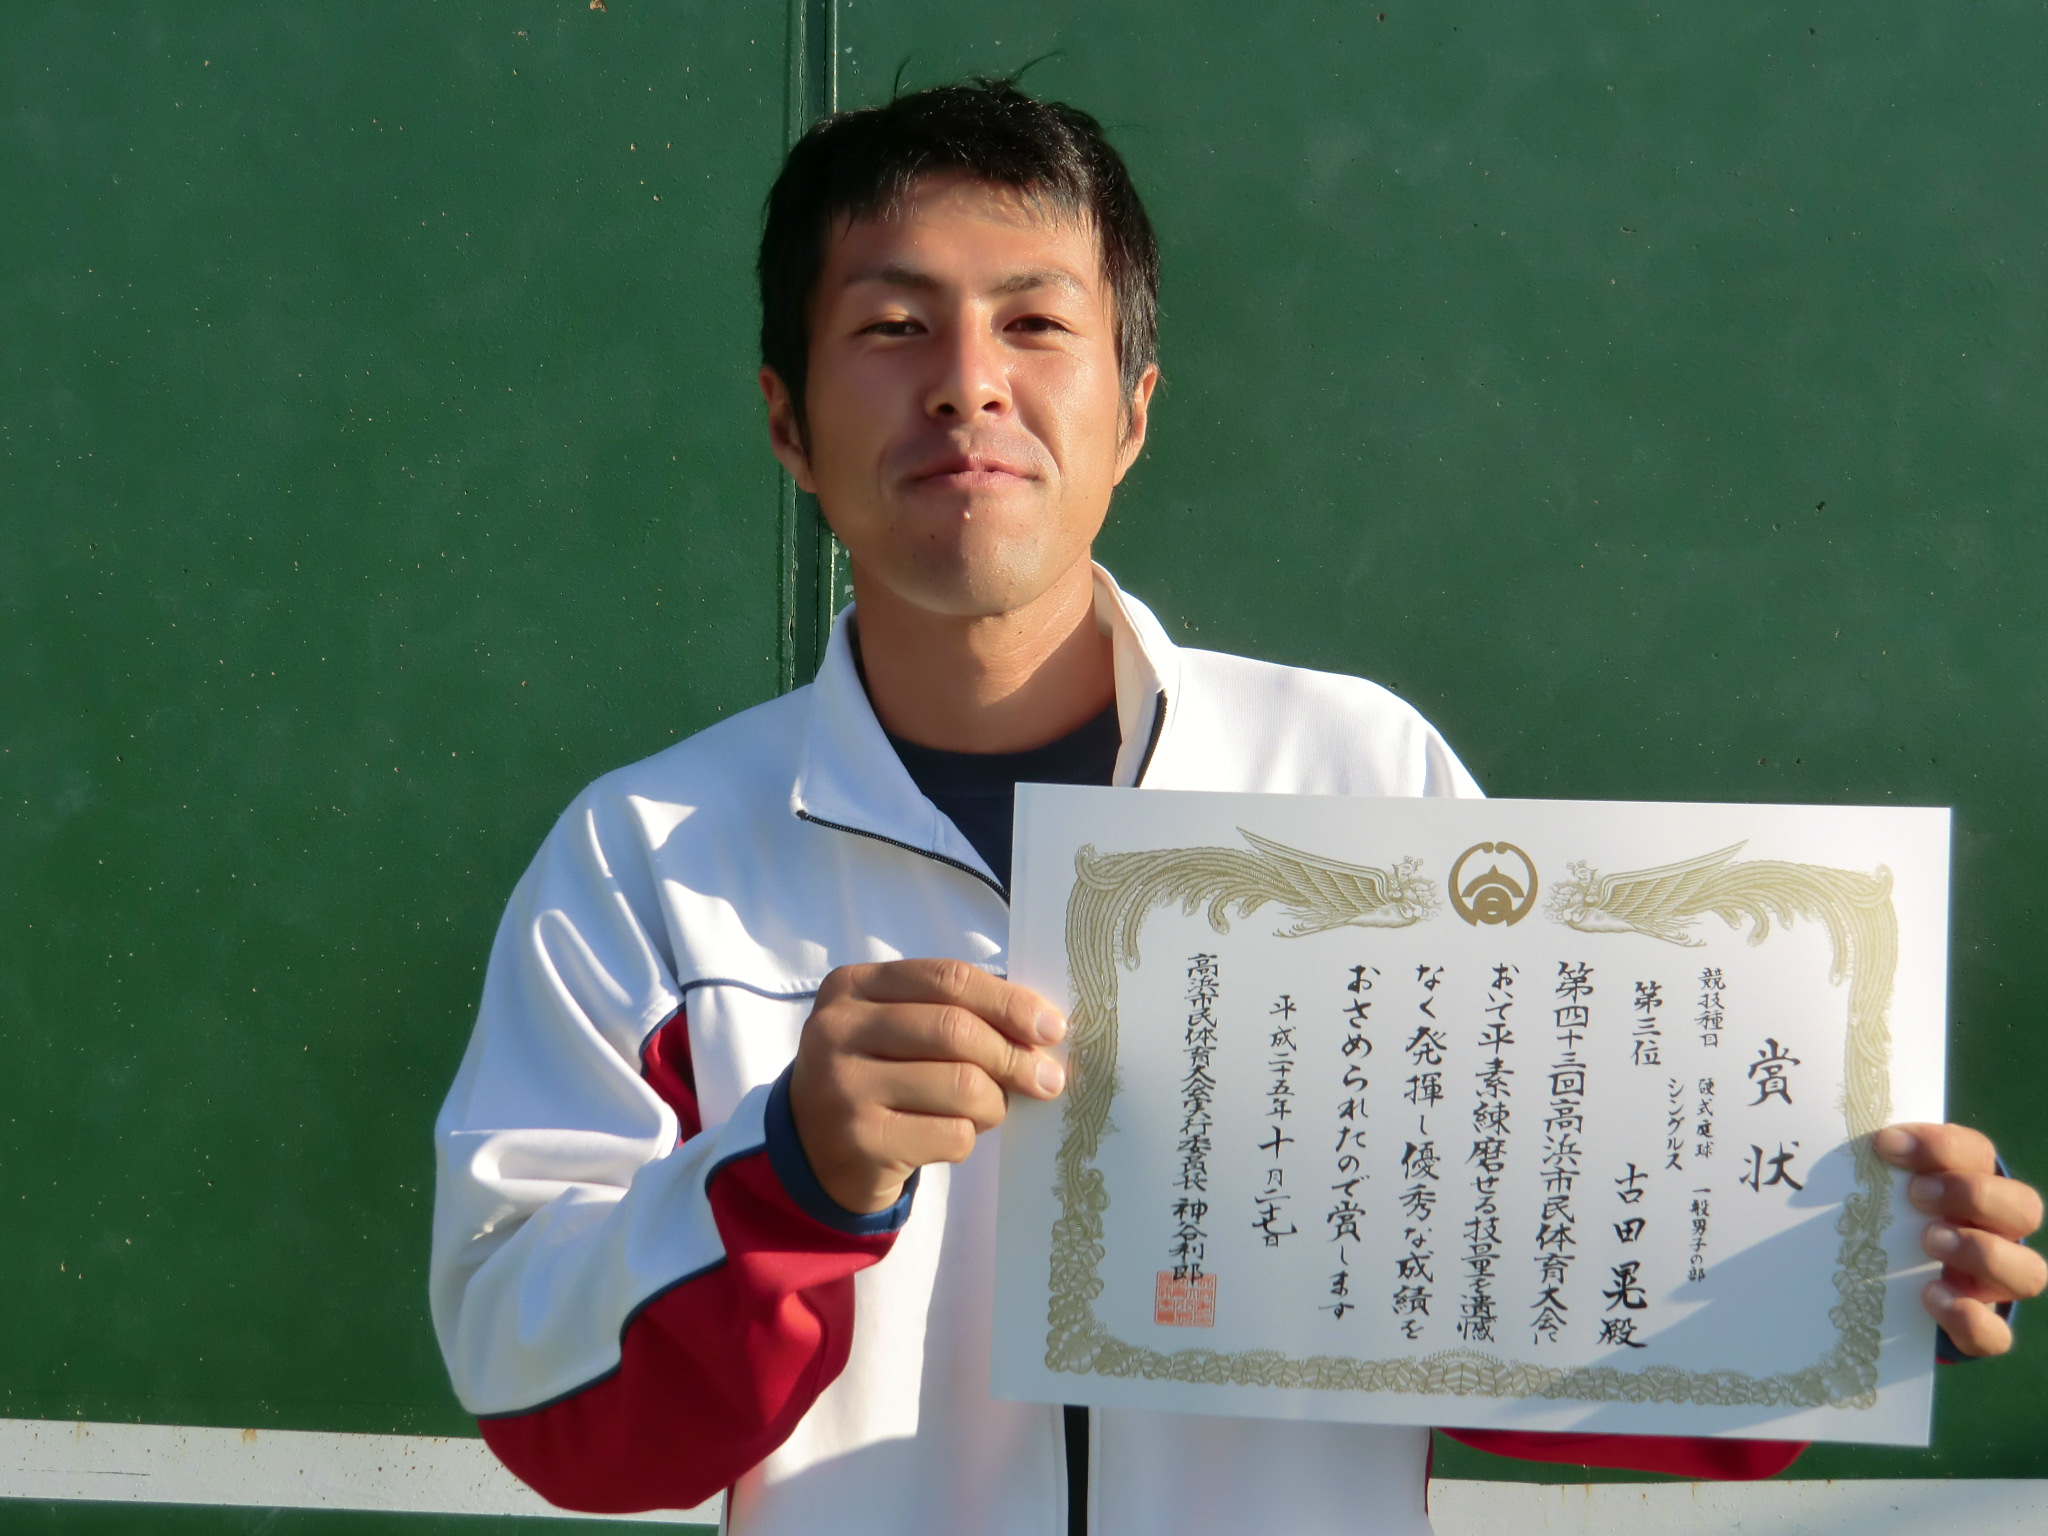 賞状
競技種目 硬式庭球 一般男子の部
シングルス
第三位
古田晃殿
第四十三回高浜市民体育大会に
おいて平素練磨せる技量を遺憾
なく発揮し優秀な成績を
おさめられたので賞します
平成二十五年十月二十七日
高浜市民体育大会実行委員長 神谷利郎